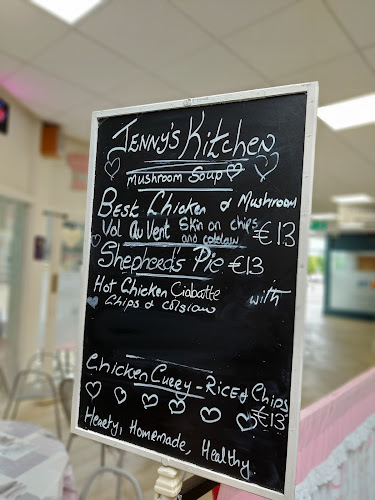 JENNY'S KITCHEN
Mushroom Soup
Best Chicken & Mushroom
Vol au Vent Skin on chips and coleslaw €13
Shepherd's Pie €13
Hot Chicken Ciabatte with
Chips & colslaw
Chicken Curry - Rice & Chips
€13
Hearty, Homemade, Healthy.